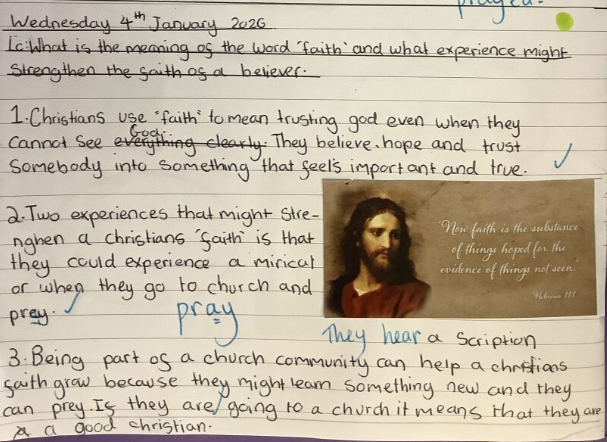 prayed.
Wednesday 4th January 2026
Lc: What is the meaning of the word 'faith' and what experience might
strengthen the faith of a believer.
1. Christians use 'faith' to mean trusting god even when they
God.
cannot see everything clearly. They believe, hope and trust
somebody into something that feel's important and true.
2. Two experiences that might stre-
nghen a christians 'faith' is that
they could experience a mirical
or when they go to church and
prey. pray
"Now faith is the substance
of things hoped for, the
evidence of things not seen."
Hebrews 11:1
They hear a Scription
3. Being part of a church community can help a christians
faith grow because they might learn something new and they
can prey. If they are going to a church it means that they are
a good christian.